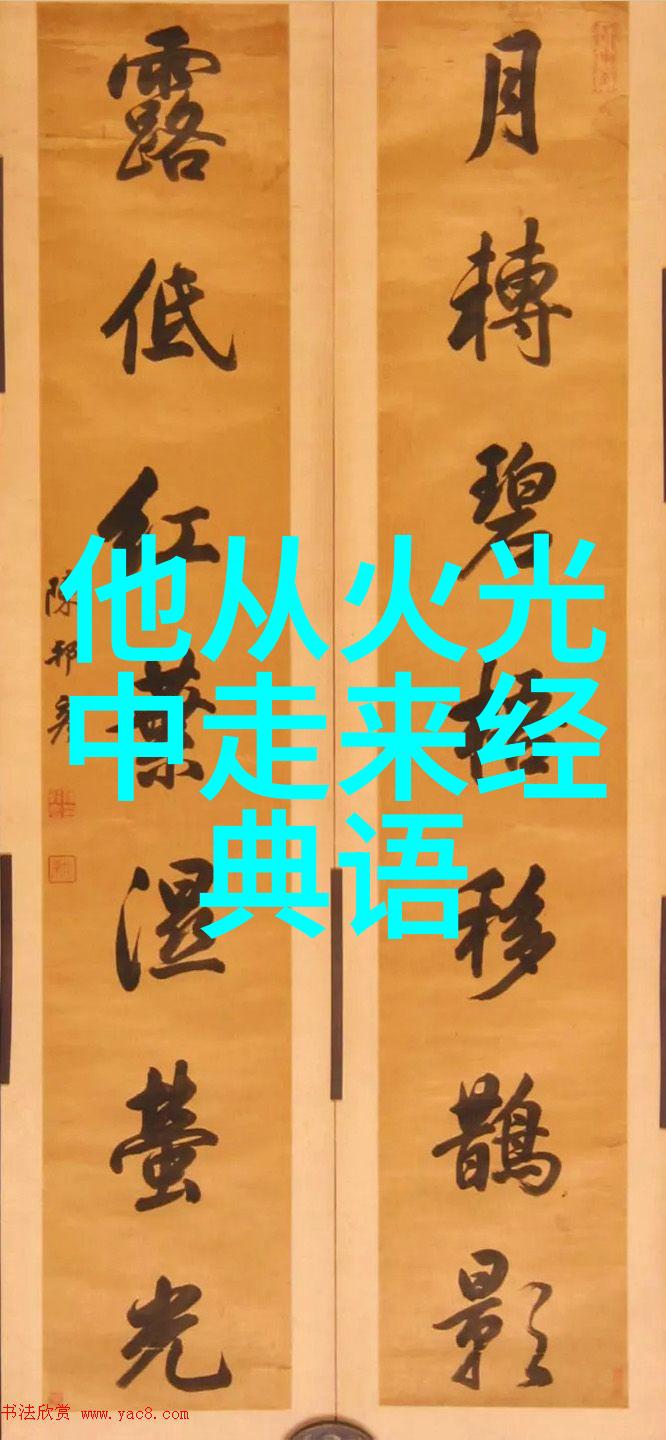 月轉碧梧移鵲影
露低紅葉濕螢光
陳邦彥
他从火光
中走来经
典语
书法欣赏 www.yac8.com